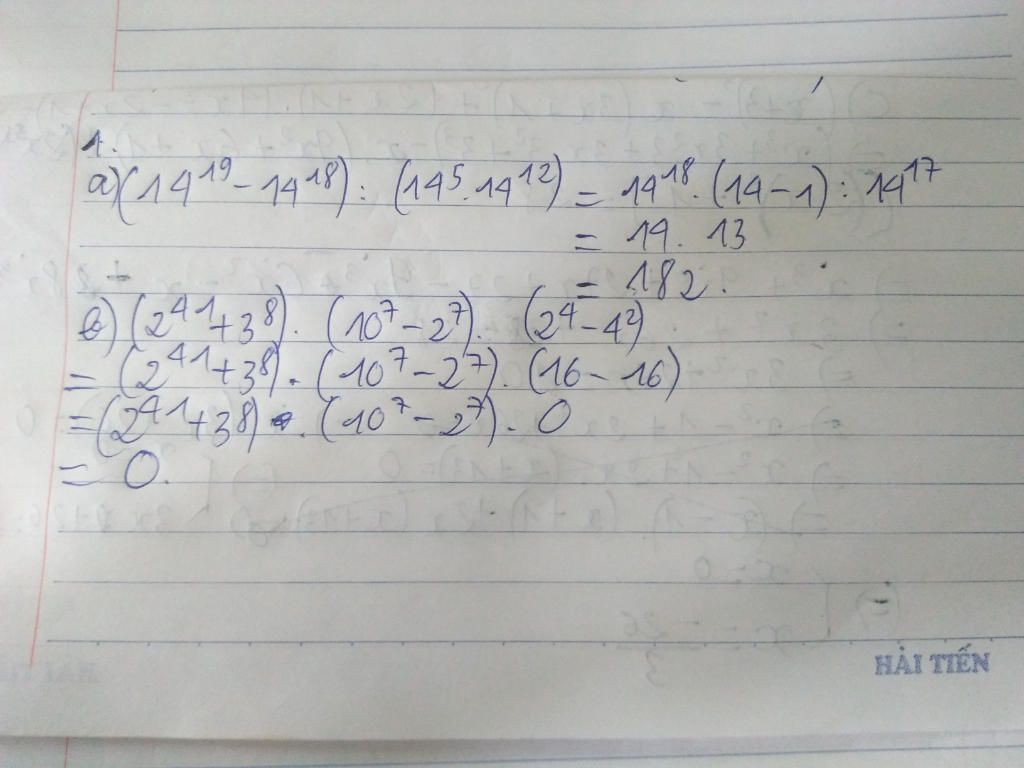 1.
a) (14¹⁹ - 14¹⁸) : (14⁵ . 14¹²) = 14¹⁸ . (14 - 1) : 14¹⁷
= 14 . 13
= 182.
b) (2⁴¹ + 3⁸) . (10⁷ - 2⁷) . (2⁴ - 4²)
= (2⁴¹ + 3⁸) . (10⁷ - 2⁷) . (16 - 16)
= (2⁴¹ + 3⁸) . (10⁷ - 2⁷) . 0
= 0.
HẢI TIẾN